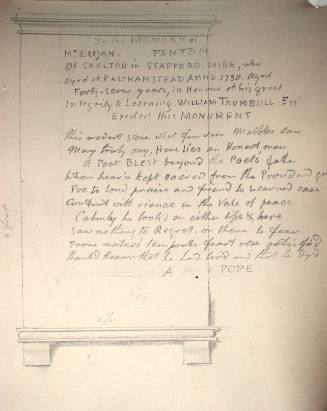 In the MEMORY of
Mr ELIJAH FENTON
OF SHELTON in STAFFORD SHIRE, who
dyed at EASTHAMSTEAD Anno 1730. aged
Forty-seven years, in Honour of his great
Integrity & Learning. WILLIAM TRUMBULL Esqr
Erected this MONUMENT
This modest stone what few vain Marbles can
May truly say, Here lies an Honest man
A Poet BLEST beyond the Poets fate
Whom heav'n kept sacred from the Proud and gr
Foe to loud praise and friend to Learned ease
Content with science in the Vale of peace
Calmly he look'd on either life & here
Saw nothing to Regret, or there to fear
From nature's temp'rate feast rose satisfy'd
Thank'd Heaven that he had liv'd and that he dy'd
A POPE